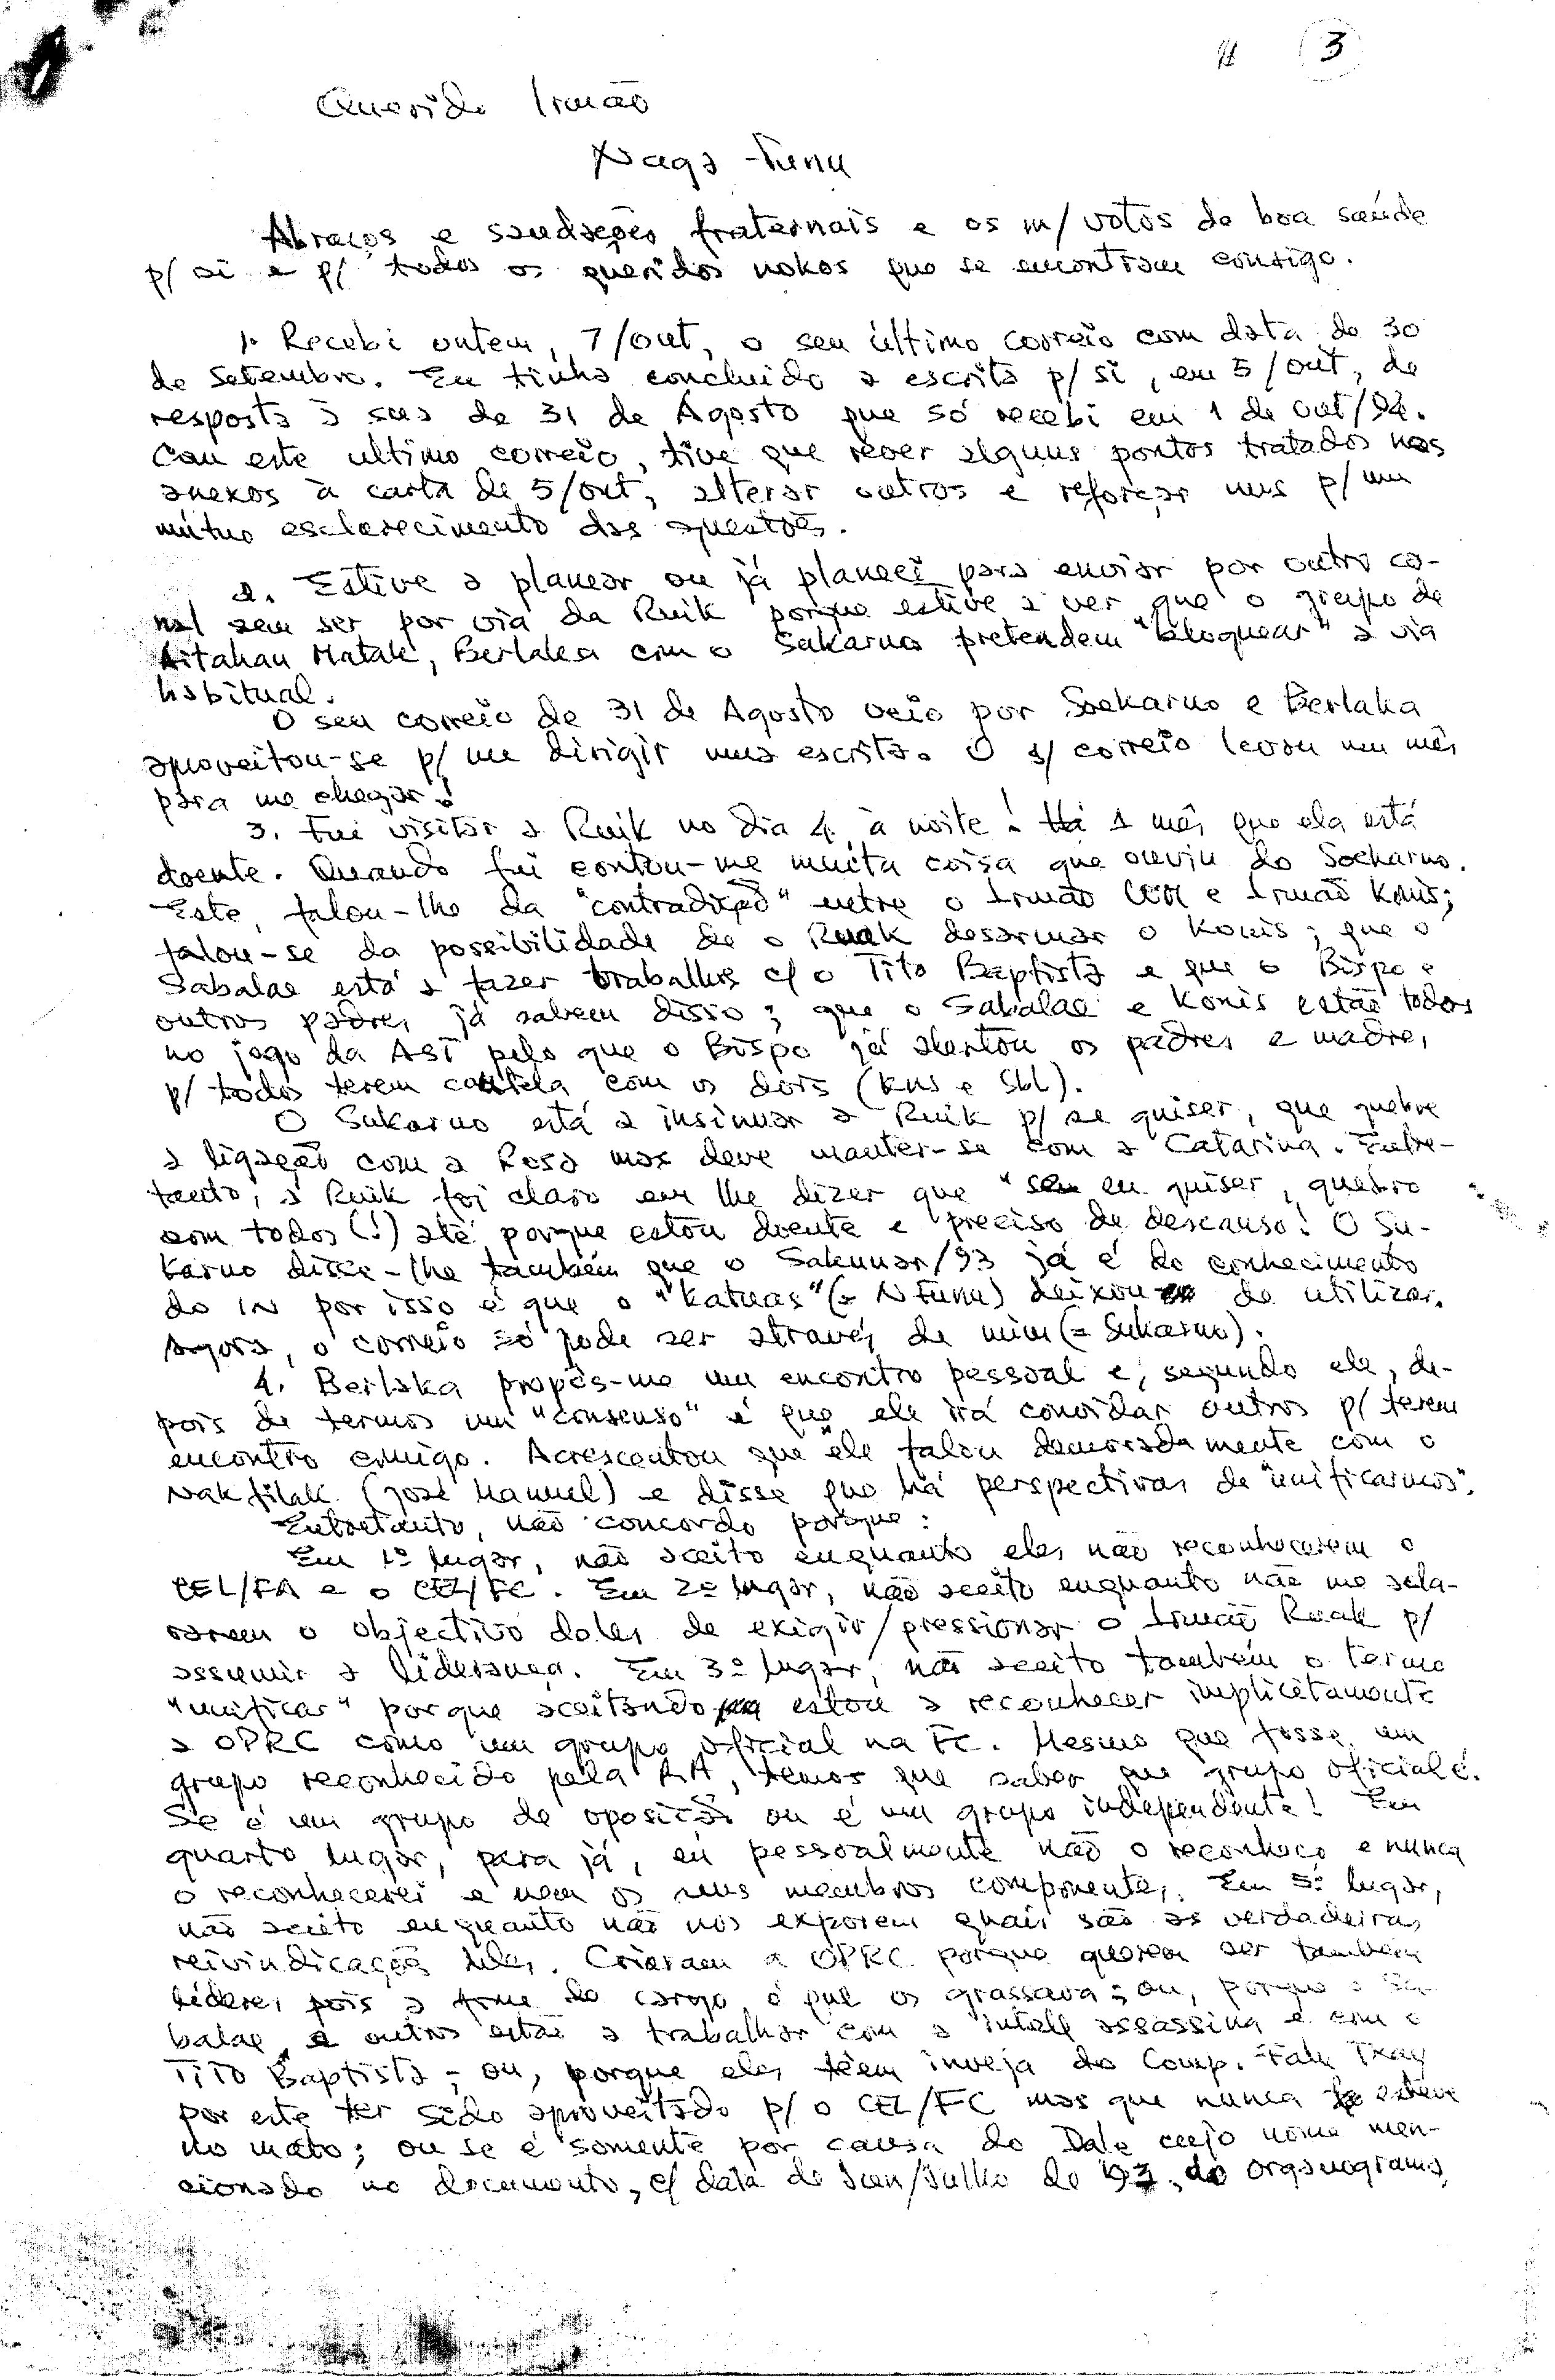 3
Querido Irmão
Nago Funu
Abraços e saudações fraternais e os m/ votos de boa saúde
p/ si e p/ todos os queridos nokos que se encontram consigo.
1. Recebi ontem, 7/out, o seu último correio com data de 30
de Setembro. Eu tinha concluido a escrita p/ si, em 5/out, de
resposta à sua de 31 de Agosto que só recebi em 1 de out/94.
Com este ultimo correio, tive que rever alguns pontos tratados nos
anexos à carta de 5/out, alterar outros e reforçar uns p/ um
mútuo esclarecimento das questões.
2. Estive a planear ou já planeei para enviar por outro ca-
nal sem ser por via da Ruik porque estive a ver que o grupo de
Aitahan Matak, Berlaka com o Sukarno pretendem "bloquear" a via
habitual.
O seu correio de 31 de Agosto veio por Soekarno e Berlaka
aproveitou-se p/ me dirigir uma escrita. O s/ correio levou um mês
para me chegar!
3. Fui visitar a Ruik no dia 4 à noite! Há 1 mês que ela está
doente. Quando fui contou-me muita coisa que ouviu do Soekarno.
Este, falou-lhe da "contradição" entre o Irmão e Irmão Konis;
falou-se da possibilidade de o Ruak desarmar o Konis; que o
Sabalae está a fazer trabalhos c/ o Tito Baptista e que o Bispo e
outros padres já sabem disso; que o Sabalae e Konis estão todos
no jogo da ASI pelo que o Bispo já alertou os padres e madres
p/ todos terem cautela com os dois (Kns e Sbl).
O Sukarno está a insinuar a Ruik p/ se quiser, que quebre
a ligação com a Rosa mas deve manter-se com a Catarina. Entre-
tanto, a Ruik foi claro em lhe dizer que "se eu quiser, quebro
com todos (!) até porque estou doente e preciso de descanso! O Su-
karno disse-lhe também que o Sakunar/93 já é do conhecimento
do IN por isso é que o "Katuas" (= N Funu) deixou de utilizar.
Agora, o correio só pode ser através de mim (= Sukarno).
4. Berlaka propôs-me um encontro pessoal e, segundo ele, de-
pois de termos um "consenso" é que ele irá convidar outros p/ terem
encontro comigo. Acrescentou que ele falou demoradamente com o
Nakfilak (José Manuel) e disse que há perspectivas de "unificarmos".
Entretanto, não concordo porque:
Em 1º lugar, não aceito enquanto eles não reconhecerem o
CEL/FA e o CEL/FC. Em 2º lugar, não aceito enquanto não me acla-
rarem o objectivo deles de exigir/pressionar o Irmão Ruak p/
assumir a liderança. Em 3º lugar, não aceito também o termo
"unificar" porque aceitando estou a reconhecer implicitamente
a OPRC como um grupo oficial na FC. Mesmo que fosse um
grupo reconhecido pela AA, temos que saber que grupo oficial é.
Se é um grupo de oposição ou é um grupo independente! Em
quarto lugar, para já, eu pessoalmente não o reconheço e nunca
o reconhecerei e nem os seus membros componentes. Em 5º lugar,
não aceito enquanto não nos exporem quais são as verdadeiras
reivindicações deles. Criaram a OPRC porque querem ser também
líderes pois a fome do cargo é que os grassava; ou, porque o Sa-
balae e outros estão a trabalhar com a intell assassina e com o
Tito Baptista; ou, porque eles têem inveja do Comp.
por este ter sido aproveitado p/ o CEL/FC mas que nunca esteve
no mato; ou se é somente por causa do Dale cujo nome men-
cionado no documento, c/ data de Jun/Julho de 93, do organograma